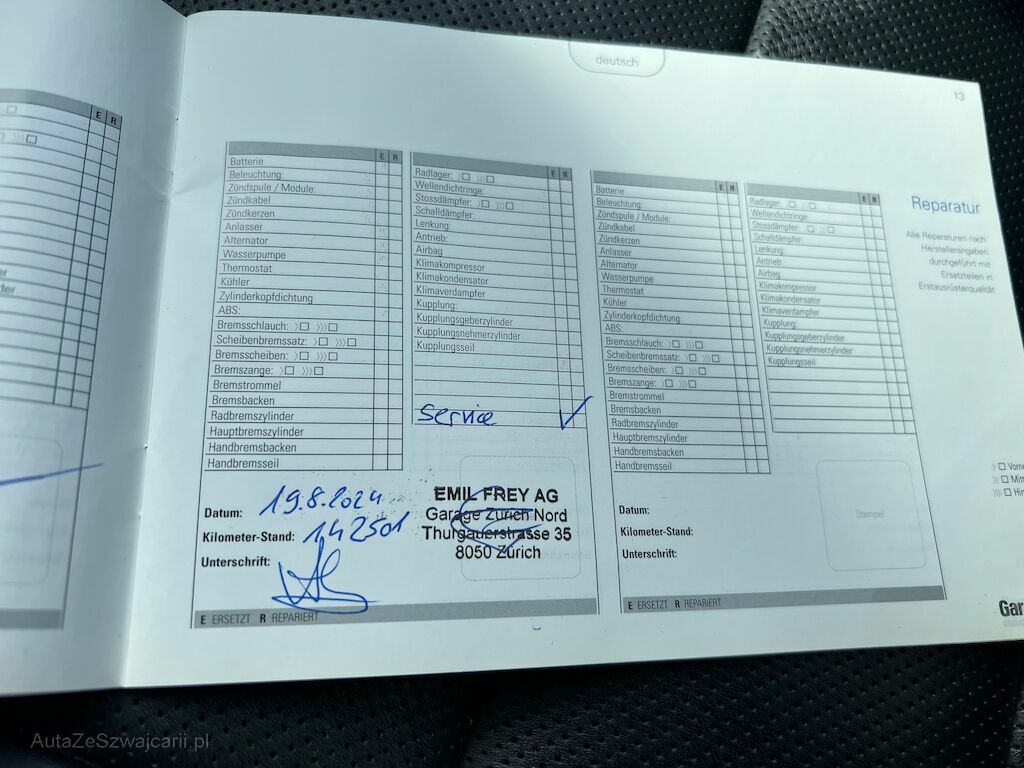 deutsch
13
E R
Batterie
Beleuchtung:
Zündspule / Module:
Zündkabel
Zündkerzen
Anlasser
Alternator
Wasserpumpe
Thermostat
Kühler
Zylinderkopfdichtung
ABS:
Bremsschlauch: 〉☐ 〉〉〉☐
Scheibenbremssatz: 〉☐ 〉〉〉☐
Bremsscheiben: 〉☐ 〉〉〉☐
Bremszange: 〉☐ 〉〉〉☐
Bremstrommel
Bremsbacken
Radbremszylinder
Hauptbremszylinder
Handbremsbacken
Handbremsseil
E R
Radlager: 〉☐ 〉〉〉☐
Wellendichtringe:
Stossdämpfer: 〉☐ 〉〉〉☐
Schalldämpfer:
Lenkung:
Antrieb:
Airbag
Klimakompressor
Klimakondensator
Klimaverdampfer
Kupplung:
Kupplungsgeberzylinder
Kupplungsnehmerzylinder
Kupplungsseil
Service ✓
Datum: 19.8.2024
Kilometer-Stand: 142501
Unterschrift:
EMIL FREY AG
Garage Zürich Nord
Thurgauerstrasse 35
8050 Zürich
E ERSETZT R REPARIERT
E R
Batterie
Beleuchtung:
Zündspule / Module:
Zündkabel
Zündkerzen
Anlasser
Alternator
Wasserpumpe
Thermostat
Kühler
Zylinderkopfdichtung
ABS:
Bremsschlauch: 〉☐ 〉〉〉☐
Scheibenbremssatz: 〉☐ 〉〉〉☐
Bremsscheiben: 〉☐ 〉〉〉☐
Bremszange: 〉☐ 〉〉〉☐
Bremstrommel
Bremsbacken
Radbremszylinder
Hauptbremszylinder
Handbremsbacken
Handbremsseil
E R
Radlager: 〉☐ 〉〉〉☐
Wellendichtringe:
Stossdämpfer: 〉☐ 〉〉〉☐
Schalldämpfer:
Lenkung:
Antrieb:
Airbag
Klimakompressor
Klimakondensator
Klimaverdampfer
Kupplung:
Kupplungsgeberzylinder
Kupplungsnehmerzylinder
Kupplungsseil
Datum:
Kilometer-Stand:
Unterschrift:
Stempel
E ERSETZT R REPARIERT
Reparatur
Alle Reparaturen nach
Herstellerangaben
durchgeführt mit
Ersatzteilen in
Erstausrüsterqualität
E R
AutaZeSzwajcarii.pl